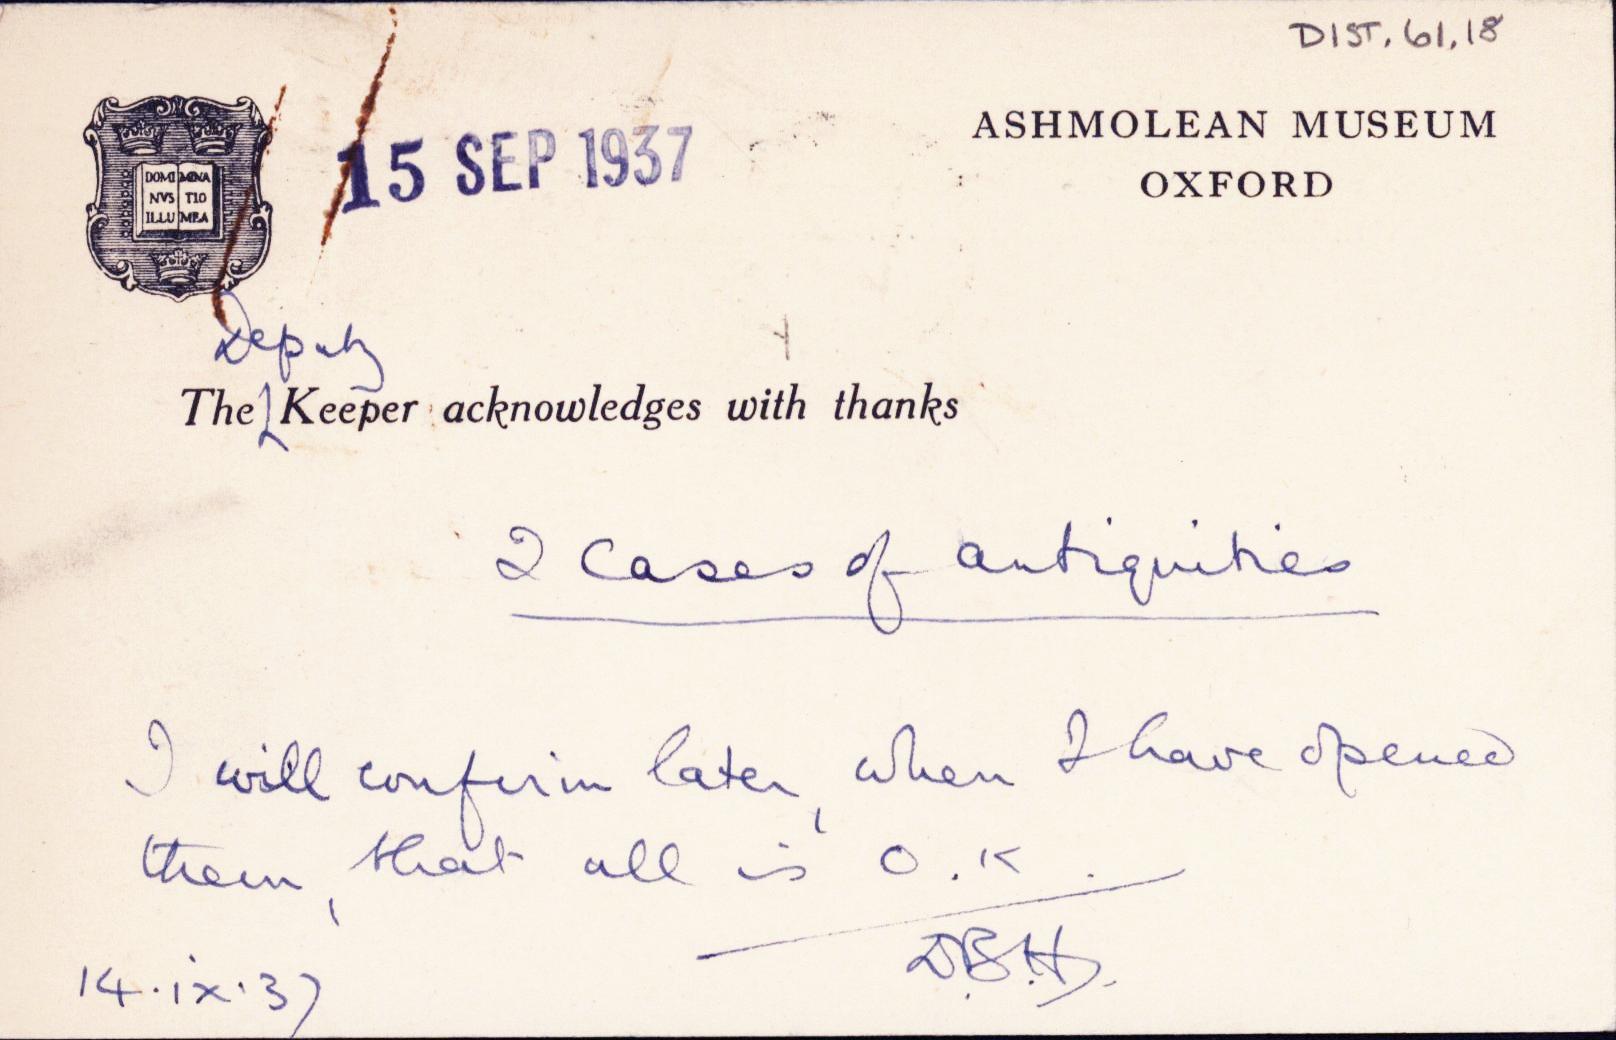 DIST. 61.18
ASHMOLEAN MUSEUM
OXFORD
15 SEP 1937
DOMI MINA
NVS TIO
ILLU MEA
Deputy
The Keeper acknowledges with thanks
2 Cases of antiquities
I will confirm later, when I have opened
them, that all is O.K.
D.B.H.
14.ix.37